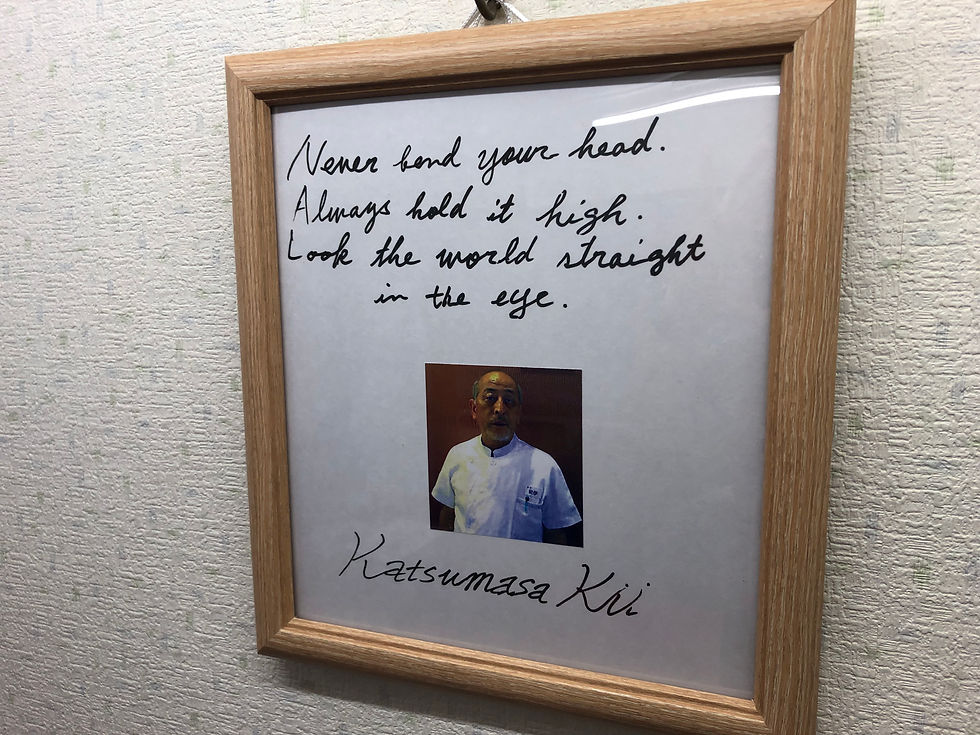 Never bend your head.
Always hold it high.
Look the world straight
in the eye.
Katsumasa Kii